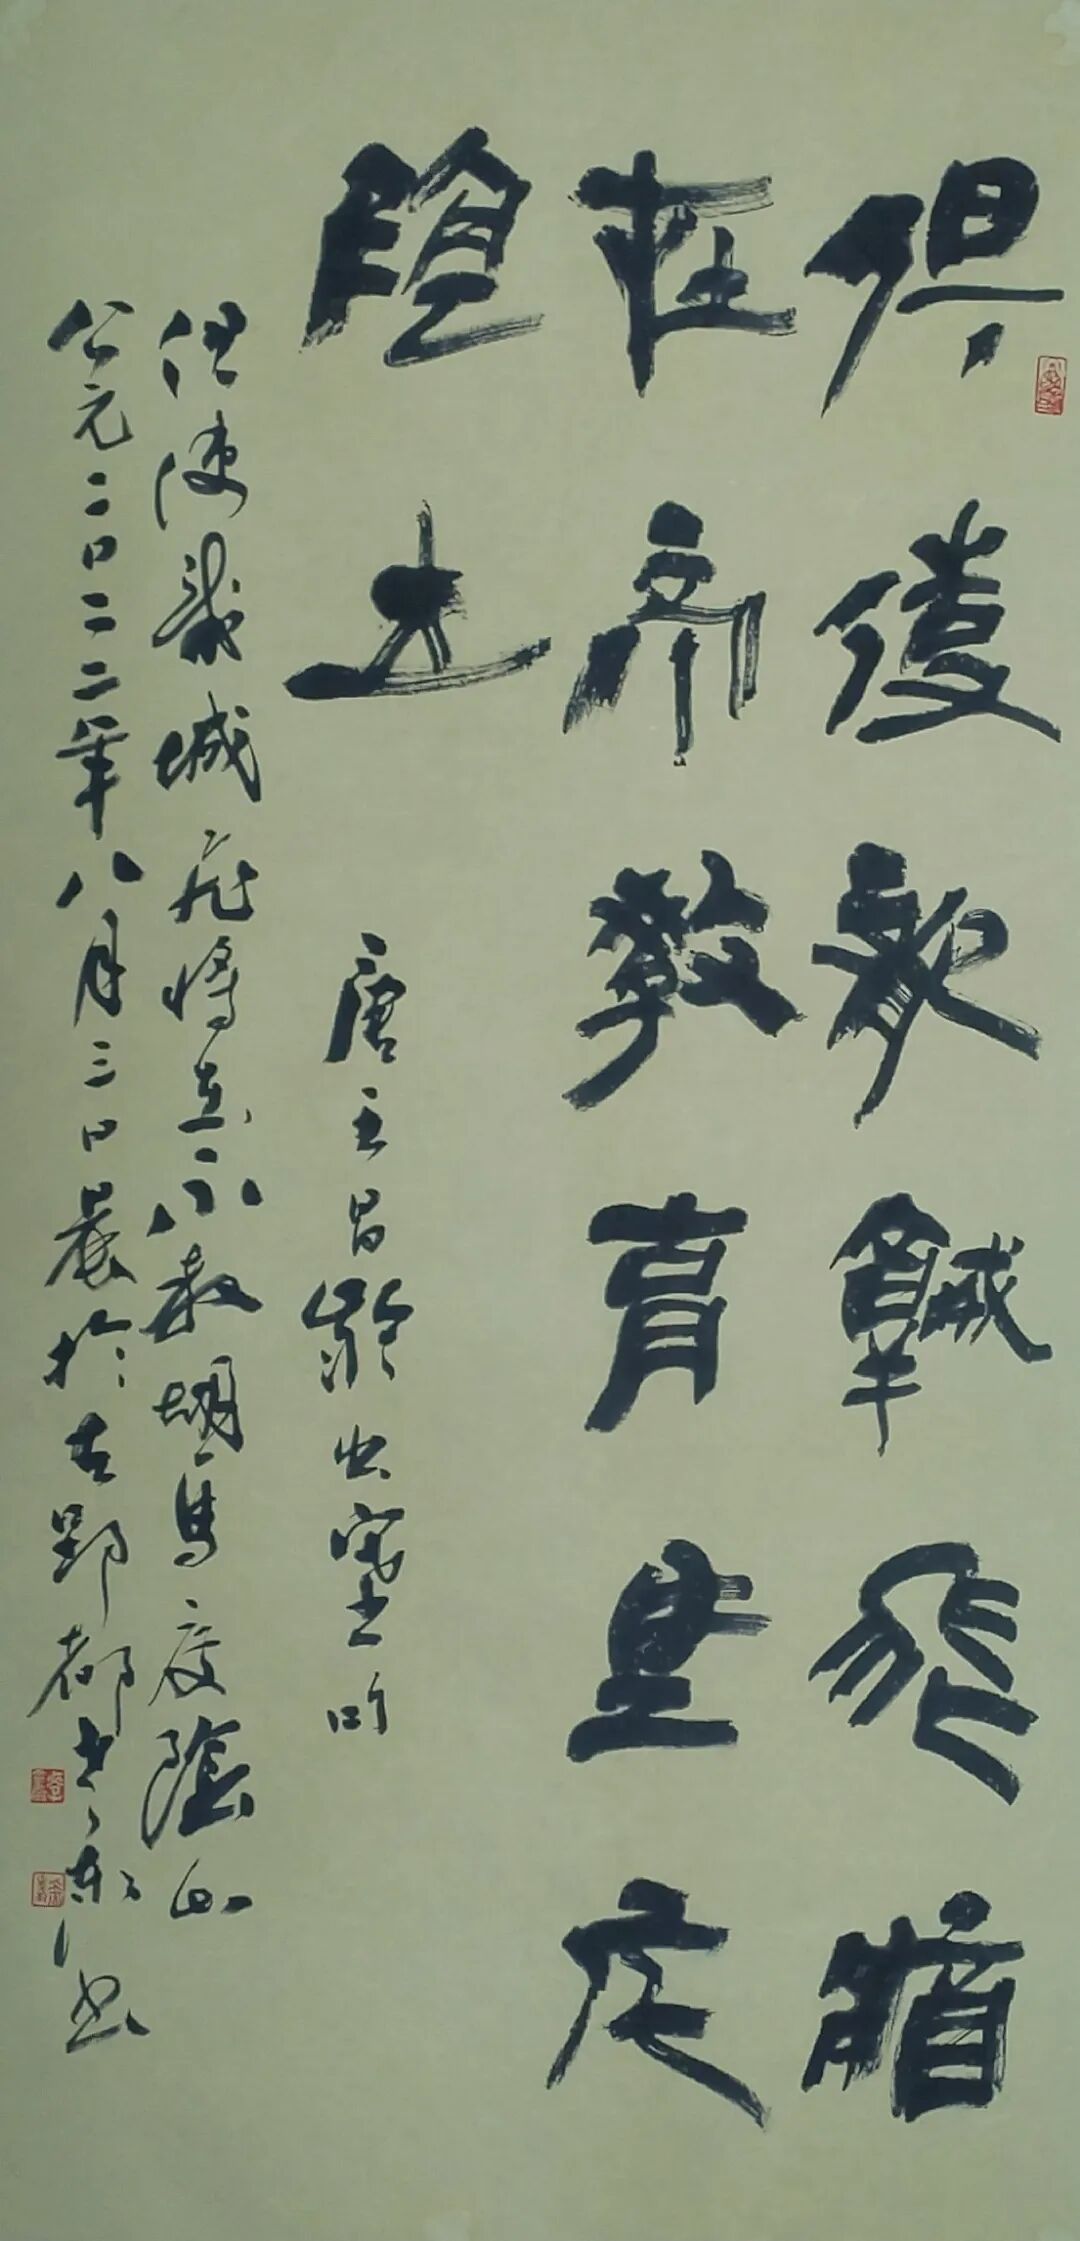 但使龍城飛將
在不教胡馬度
陰山
唐王昌齡出塞
但使龍城飛將在不教胡馬度陰山
公元二〇二二年八月三日晨於古郢都書